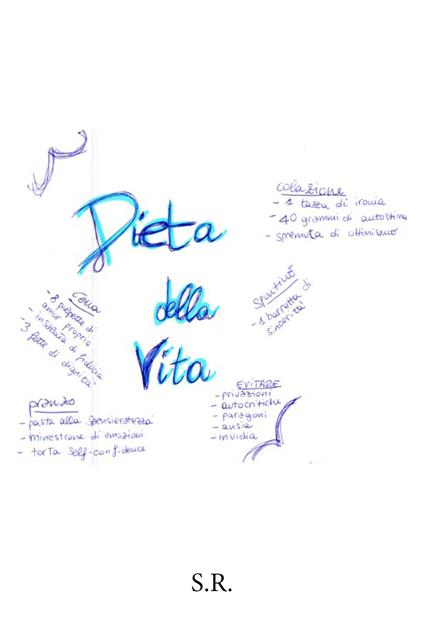 Dieta
della
Vita
colazione
- 1 tazza di ironia
- 40 grammi di autostima
- spremuta di ottimismo
Spuntino
- 1 barretta di
sincerità
Cena
- 8 polpette di
amor proprio
- insalata di fiducia
- 3 fette di dignità
pranzo
- pasta alla spensieratezza
- minestrone di emozioni
- torta self-confidence
EVITARE
- privazioni
- autocritiche
- paragoni
- ansia
- invidia
S.R.